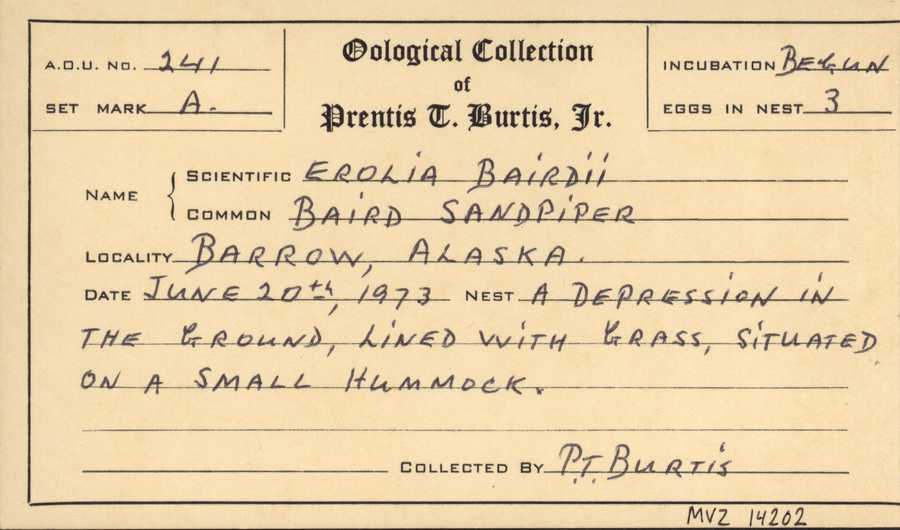 A.O.U. No. 241
SET MARK A.
Oological Collection
of
Prentis T. Burtis, Jr.
INCUBATION BEGUN
EGGS IN NEST 3
NAME
SCIENTIFIC EROLIA BAIRDII
COMMON BAIRD SANDPIPER
LOCALITY BARROW, ALASKA.
DATE JUNE 20th, 1973 NEST A DEPRESSION IN
THE GROUND, LINED WITH GRASS, SITUATED
ON A SMALL HUMMOCK.
COLLECTED BY P.T. BURTIS
MVZ 14202